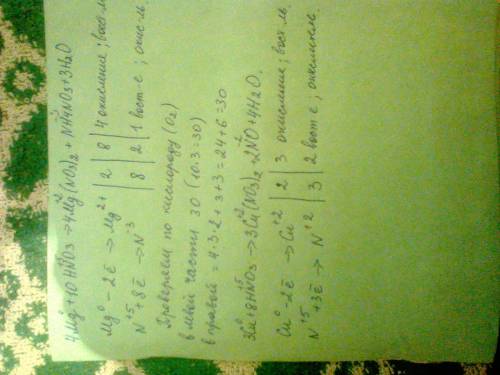 4Mg⁰+10HN⁺⁵O₃→4Mg⁺²(NO₃)₂ + N⁻³H₄NO₃+3H₂O
Mg⁰ - 2ē → Mg²⁺ | 2 | 8 | 4 окисление; вост-ль
N⁺⁵ + 8ē → N⁻³ | 8 | 2 | 1 вост-е; окис-ль
Проверяем по кислороду (O₂)
в левой части 30 (10·3=30)
в правой = 4·3·2+3+3=24+6=30
3Cu⁰+8HN⁺⁵O₃→3Cu⁺²(NO₃)₂+2N⁺²O+4H₂O.
Cu⁰ - 2ē → Cu⁺² | 2 | 3 окисление; вост-ль
N⁺⁵ +3ē → N⁺² | 3 | 2 вост-е,